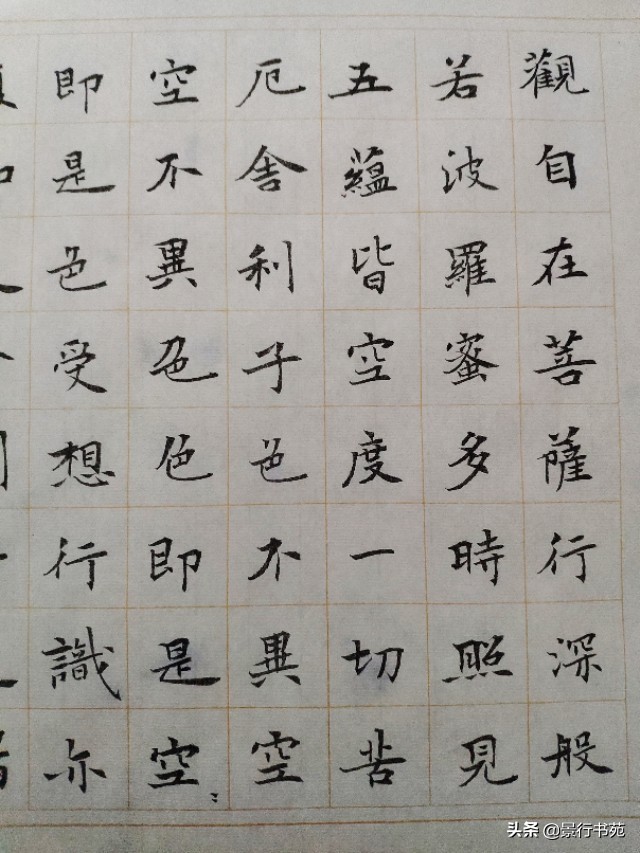 觀自在菩薩行深般
若波羅蜜多時照見
五蘊皆空度一切苦
厄舍利子色不異空
空不異色色即是空〻
即是色受想行識亦
头条 @景行书苑